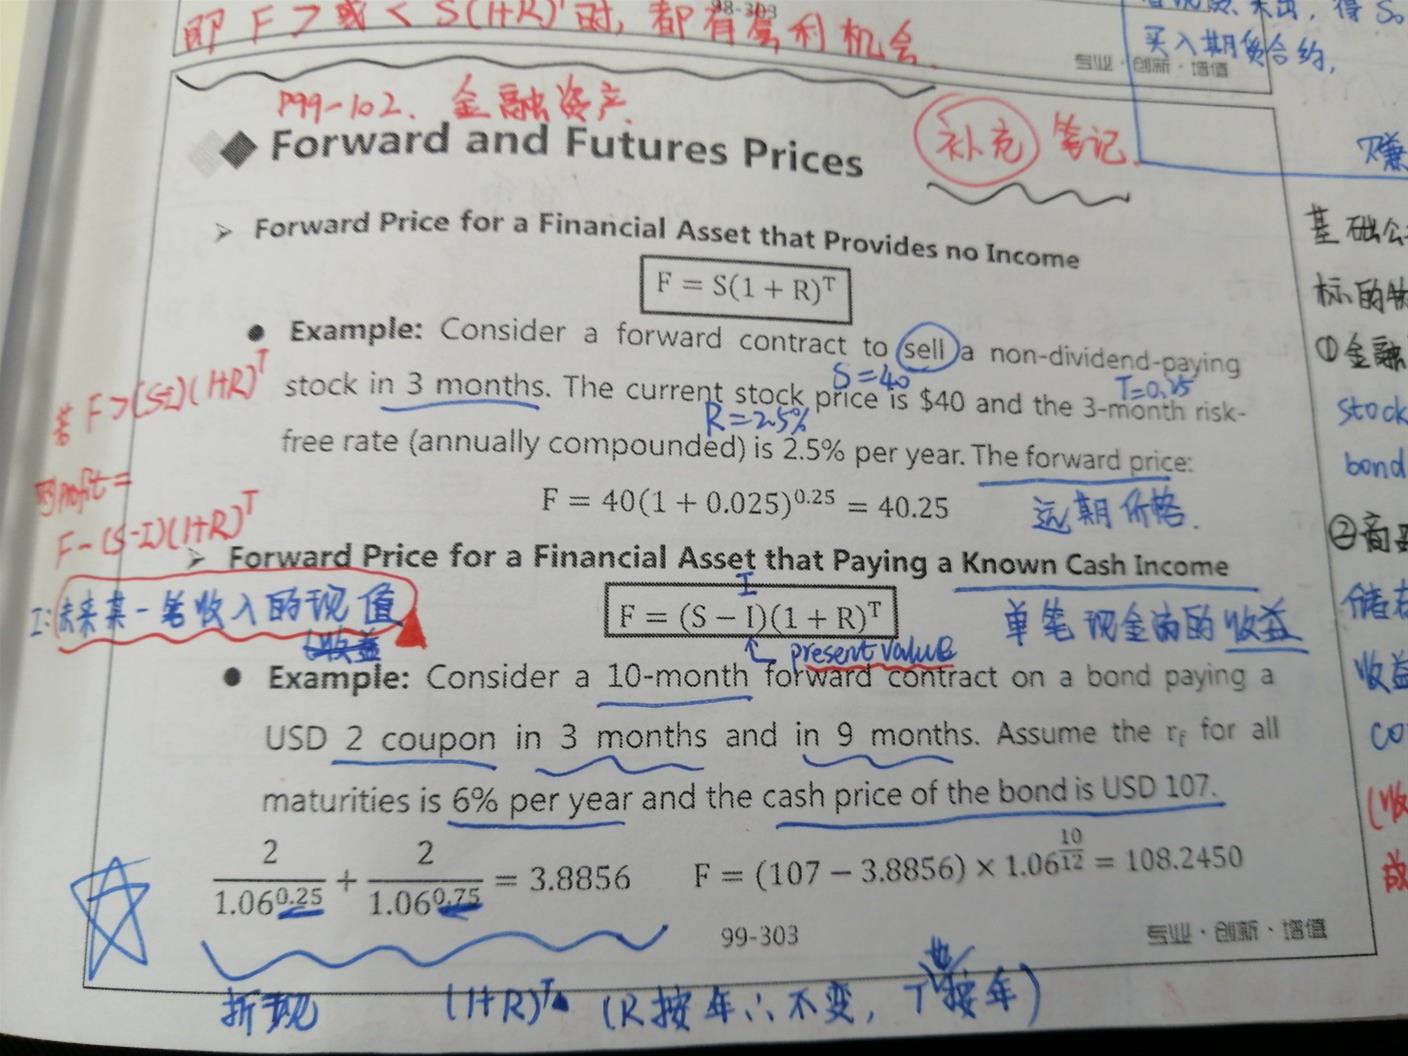 即 F > 或 < S(1+R)ᵀ 时, 都有套利机会.
98-303
买入期货合约,
专业 · 创新 · 增值
P99-102. 金融资产.
补充 笔记.
Forward and Futures Prices
赚
Forward Price for a Financial Asset that Provides no Income
F = S(1 + R)ᵀ
Example: Consider a forward contract to sell a non-dividend-paying
S=40
T=0.25
stock in 3 months. The current stock price is $40 and the 3-month risk-
R=2.5%
free rate (annually compounded) is 2.5% per year. The forward price:
F = 40(1 + 0.025)^0.25 = 40.25
远期价格.
若 F>(S-I)(1+R)ᵀ
则profit=
F-(S-I)(1+R)ᵀ
Forward Price for a Financial Asset that Paying a Known Cash Income
I
F = (S − I)(1 + R)ᵀ
present value
单笔现金流的收益
I: 未来某一笔收入的现值
收益
Example: Consider a 10-month forward contract on a bond paying a
USD 2 coupon in 3 months and in 9 months. Assume the r_f for all
maturities is 6% per year and the cash price of the bond is USD 107.
2/1.06^0.25 + 2/1.06^0.75 = 3.8856 F = (107 − 3.8856) × 1.06^(10/12) = 108.2450
99-303
专业 · 创新 · 增值
折现 (1+R)ᵀ (R按年∴不变, T也按年)
标的物
①金融
stock
bond
②商
收益